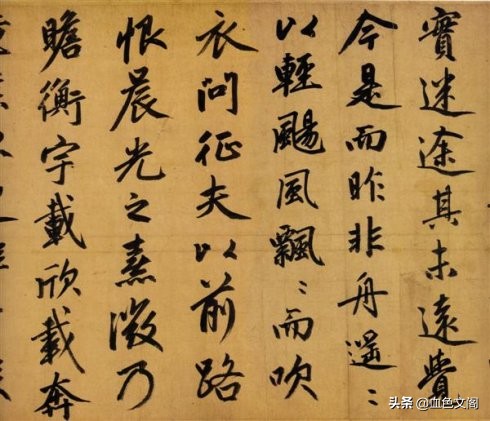 實迷途其未遠覺
今是而昨非舟遥〻
以輕颺風飄〻而吹
衣問征夫以前路
恨晨光之熹微乃
瞻衡宇載欣載奔
头条 @血色文阁